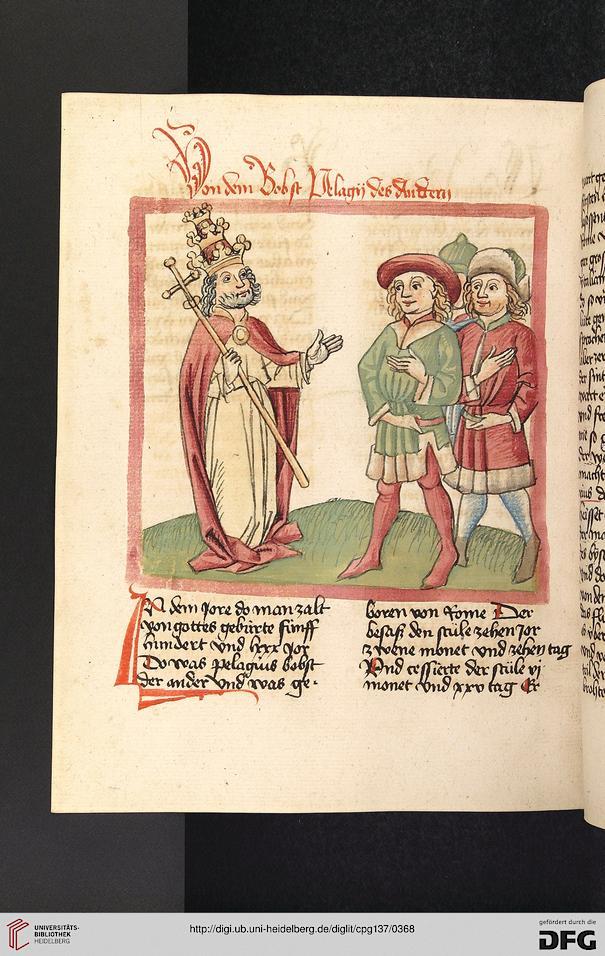 Von dem Bobst Pelagij des Andern
IN dem Jore do man zalt
von gottes gebürte fünff
hundert vnd lxxx Jor
Do was Pelagius bobst
der ander vnd was ge-
boren von Rome Der
besaß den stůle zehen Jor
zwene monet vnd zehen tag
Vnd cessierte der stůle vj
monet vnd xxv tag Er
UNIVERSITÄTS-
BIBLIOTHEK
HEIDELBERG
http://digi.ub.uni-heidelberg.de/diglit/cpg137/0368
gefördert durch die
DFG